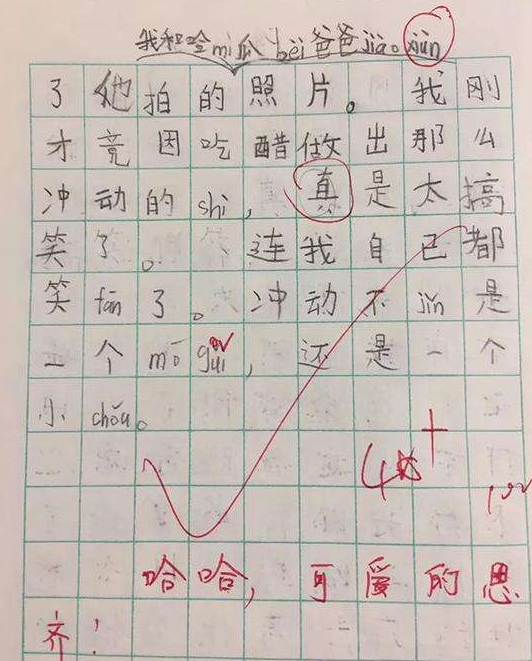 我和哈mì瓜 bèi爸爸jiào xùn
了他拍的照片。 我刚
才竟因吃醋做出那么
冲动的shì，真是太搞
笑了。 连我自己都
笑fān了。冲动不jǐn是
一个mó guǐ，还是一个
小chǒu。
4☆+
哈哈，可爱的思
齐！